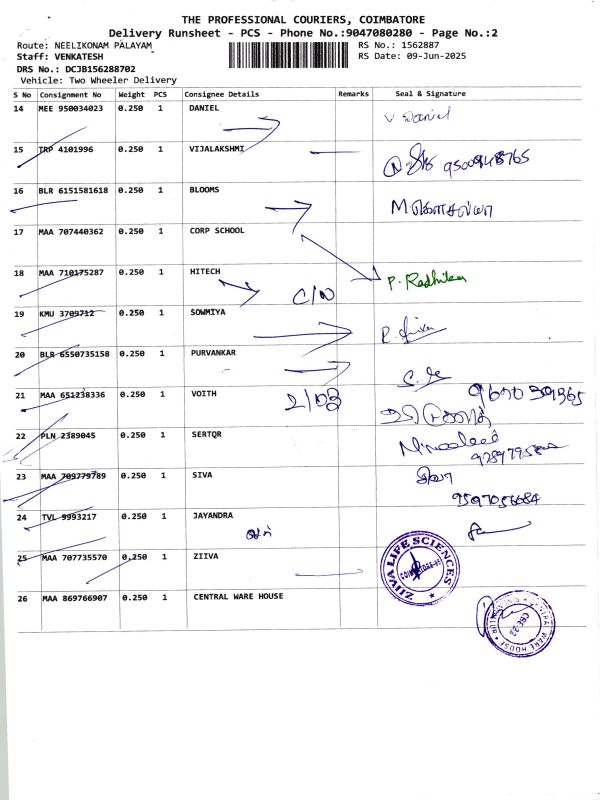 THE PROFESSIONAL COURIERS, COIMBATORE
Delivery Runsheet - PCS - Phone No.:9047080280 - Page No.:2
Route: NEELIKONAM PALAYAM
RS No.: 1562887
Staff: VENKATESH
RS Date: 09-Jun-2025
DRS No.: DCJB156288702
Vehicle: Two Wheeler Delivery
S No Consignment No Weight PCS Consignee Details Remarks Seal & Signature
14 MEE 950034023 0.250 1 DANIEL V Daniel
15 TRP 4101996 0.250 1 VIJALAKSHMI 9500948765
16 BLR 6151581618 0.250 1 BLOOMS M.கௌசல்யா
17 MAA 707440362 0.250 1 CORP SCHOOL
18 MAA 710175287 0.250 1 HITECH C/N P. Radhika
19 KMU 3709712 0.250 1 SOWMIYA
20 BLR 6550735158 0.250 1 PURVANKAR
21 MAA 651238336 0.250 1 VOITH
22 PLN 2389045 0.250 1 SERTQR
23 MAA 709779789 0.250 1 SIVA சிவா
9597056684
24 TVL 9993217 0.250 1 JAYANDRA
25 MAA 707735570 0.250 1 ZIIVA ZIIVA LIFE SCIENCES
26 MAA 869766907 0.250 1 CENTRAL WARE HOUSE